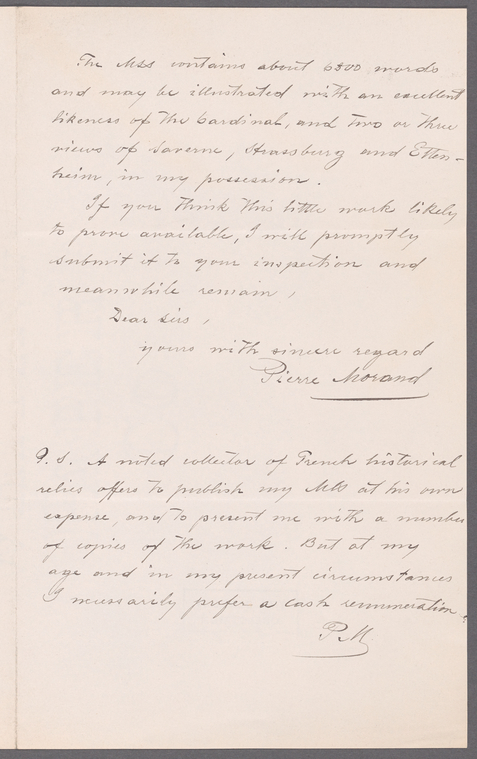 The MSS contains about 6500 words
and may be illustrated with an excellent
likeness of the Cardinal, and two or three
views of Saverne, Strassburg and Etten-
heim, in my possession.
If you think this little work likely
to prove available, I will promptly
submit it to your inspection and
meanwhile remain,
Dear Sirs,
yours with sincere regard
Pierre Morand
P.S. A noted collector of French historical
relics offers to publish my MSS at his own
expense, and to present me with a number
of copies of the work. But at my
age and in my present circumstances
I necessarily prefer a cash remuneration.
P M